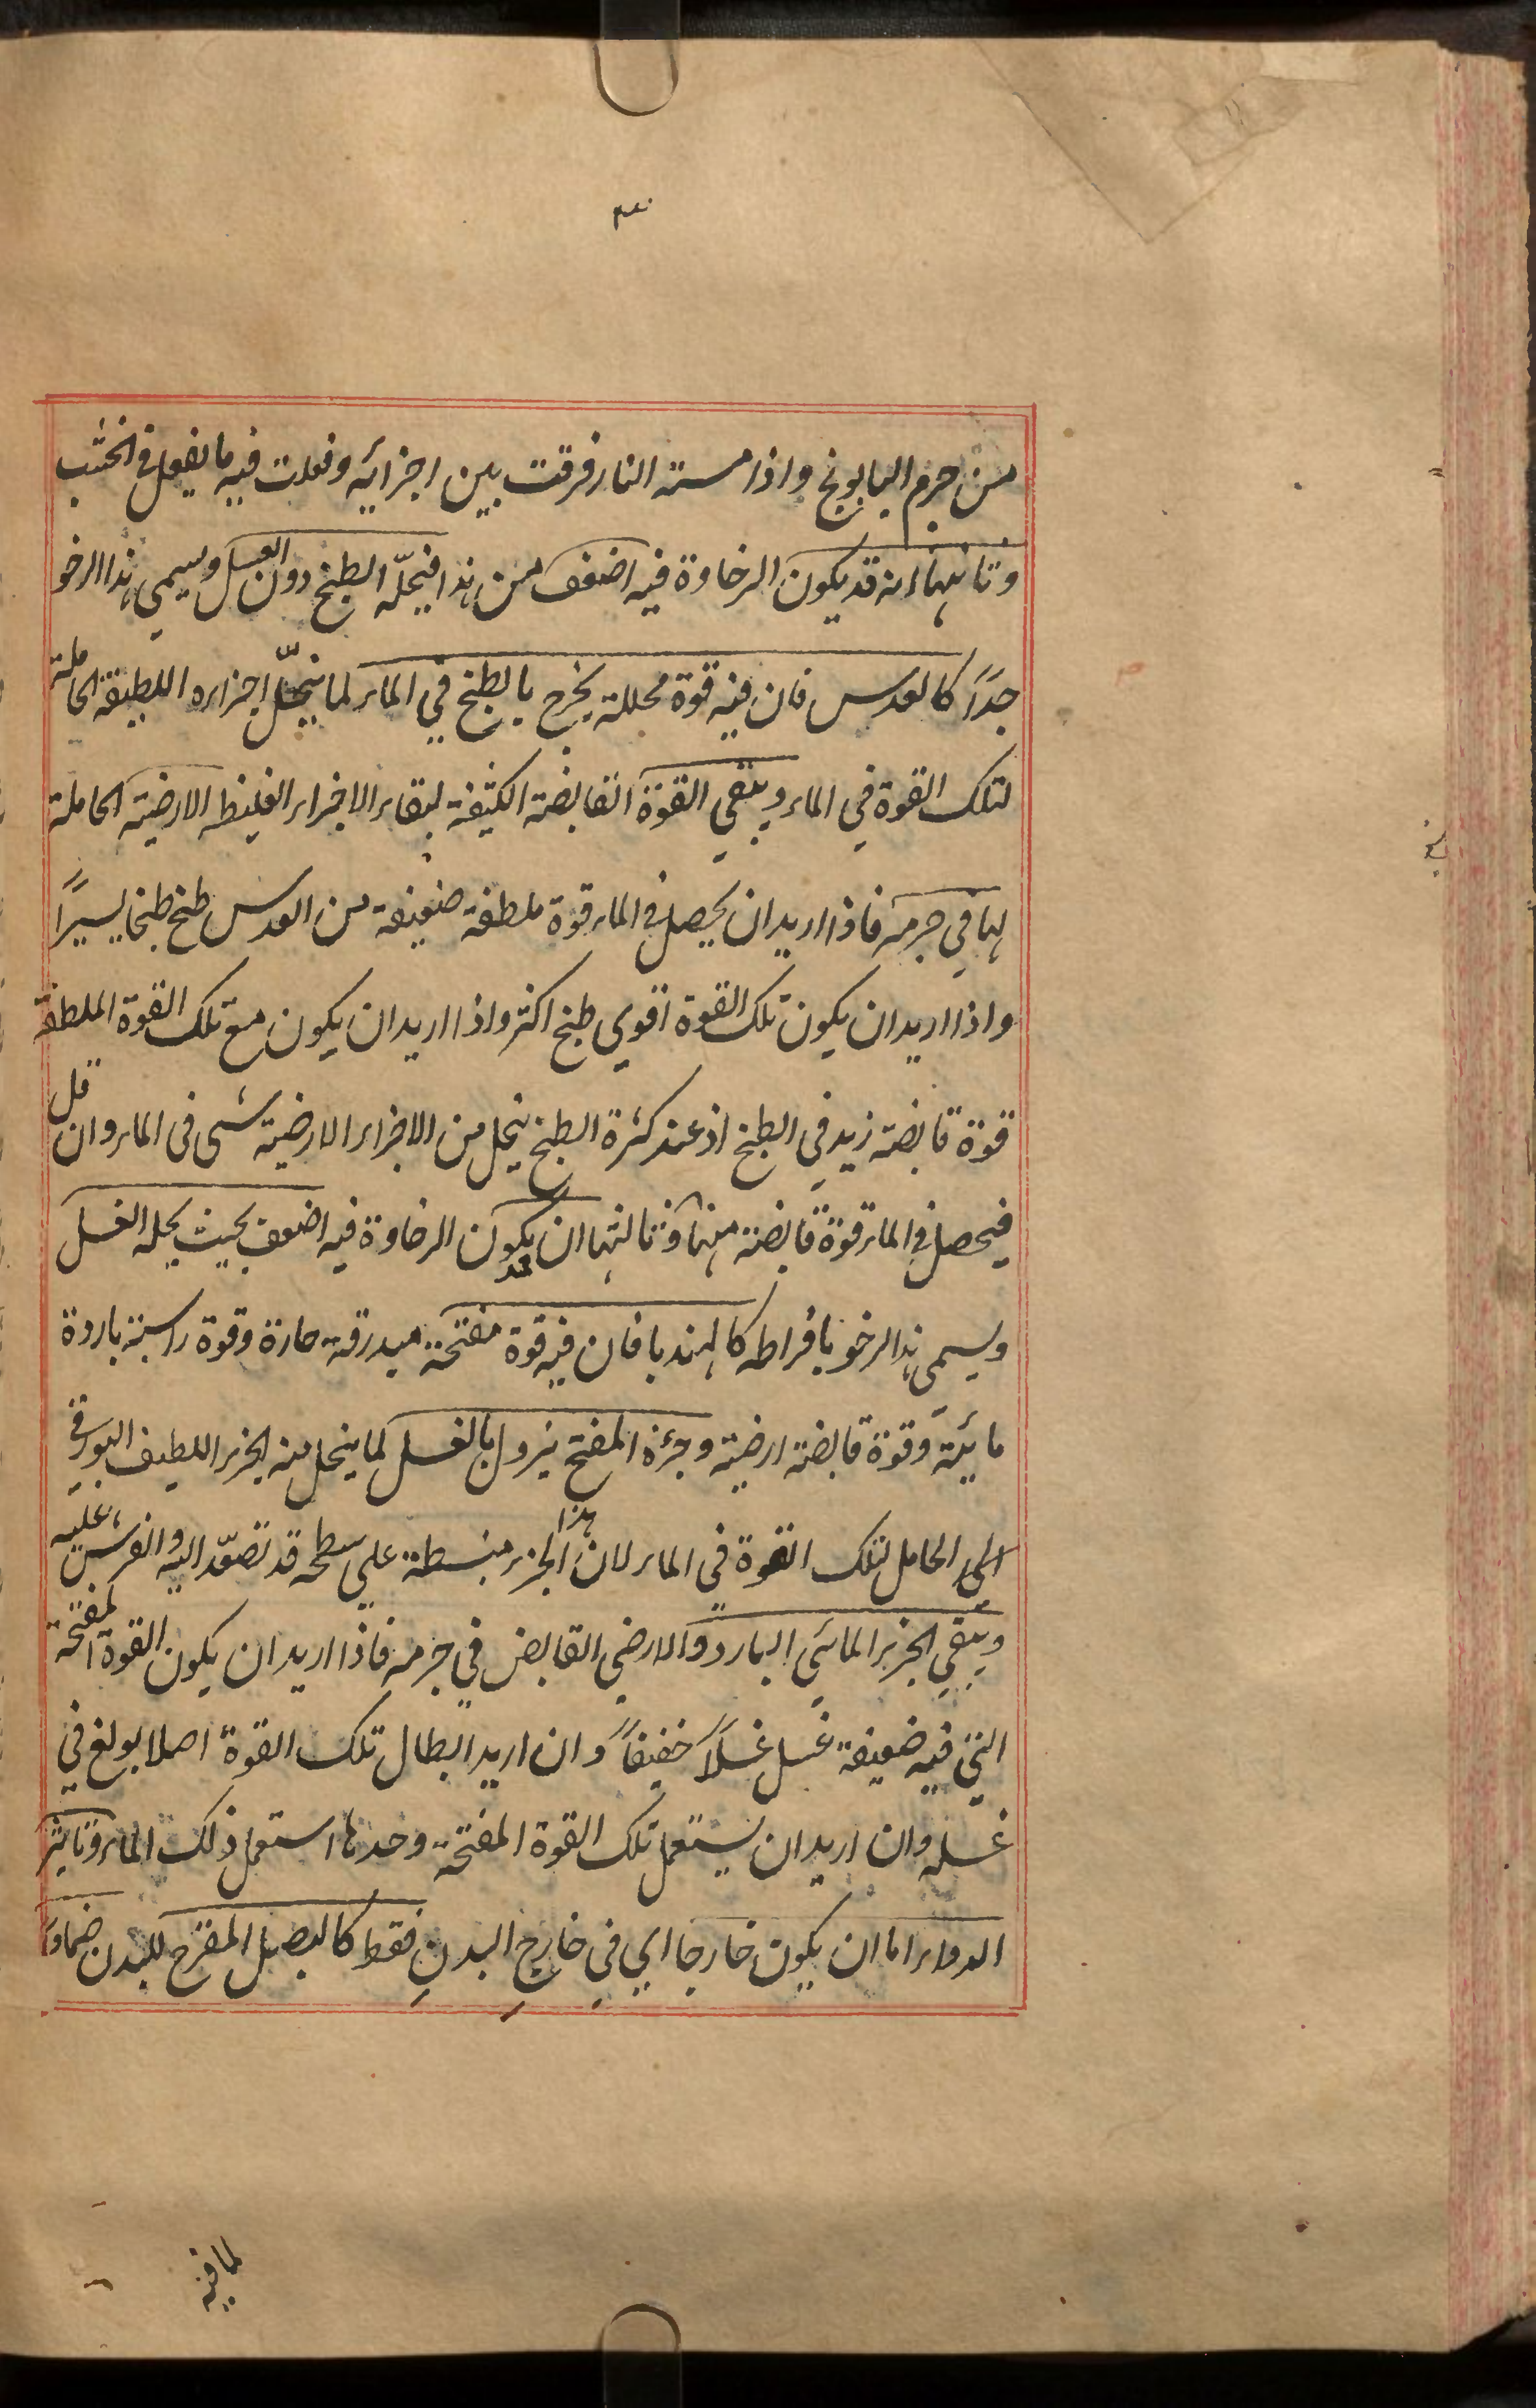 من جرم البابونج واذا مسته النار فرقت بين اجزائه وفعلت فيه ما يفعل فى الخشب
وثانيها انه قد يكون الرخاوة فيه اضعف من هذا فيحلّه الطبخ دون الغسل ويسمي هذا الرخو
جدًا كالعدس فان فيه قوة محللة يخرج بالطبخ في الماء لما ينحلّ اجزاءه اللطيفة الحاملة
لتلك القوة في الماء ويبقي القوة القابضة الكثيفة لبقاء الاجزاء الغليظه الارضية الحاملة
لها في جرمه فاذا اريد ان يحصل فى الماء قوة ملطفة ضعيفة من العدس طبخ طبخا يسيرًا
واذا اريد ان يكون تلك القوة اقوي طبخ اكثر واذا اريد ان يكون مع تلك القوة الملطفة
قوة قابضة زيد في الطبخ اذ عند كثرة الطبخ ينحل من الاجزاء الارضية شى فى الماء وان قل
فيحصل فى الماء قوة قابضة منها وثالثها ان قد يكون الرخاوة فيه اضعف بحيث يحله الغسل
ويسمى هذا الرخو بافراط كالهندبا فان فيه قوة مفتحة مبدرقة حارة وقوة راسبة باردة
مائية وقوة قابضة ارضية وجزءه المفتح يزول بالغسل لما ينحل منه الجزء اللطيف البورقي
الي الحامل لتلك القوة في الماء لان هذا الجزء منبسطة علي سطحه قد تصعّد اليه وانفرش عليه
ويبقي الجزء المائي البارد والارضي القابض في جرمه فاذا اريد ان يكون القوة المفتحة
التي فيه ضعيفة غسل غسلاً خفيفاً وان اريد ابطال تلك القوة اصلا بولغ في
غسله وان اريد ان يستعمل تلك القوة المفتحة وحدها استعمل ذلك الماء وتاثير
الدواء اما ان يكون خارجا اي في خارج البدن فقط كالبصل المقرح للبدن ضمادا
لما فيه